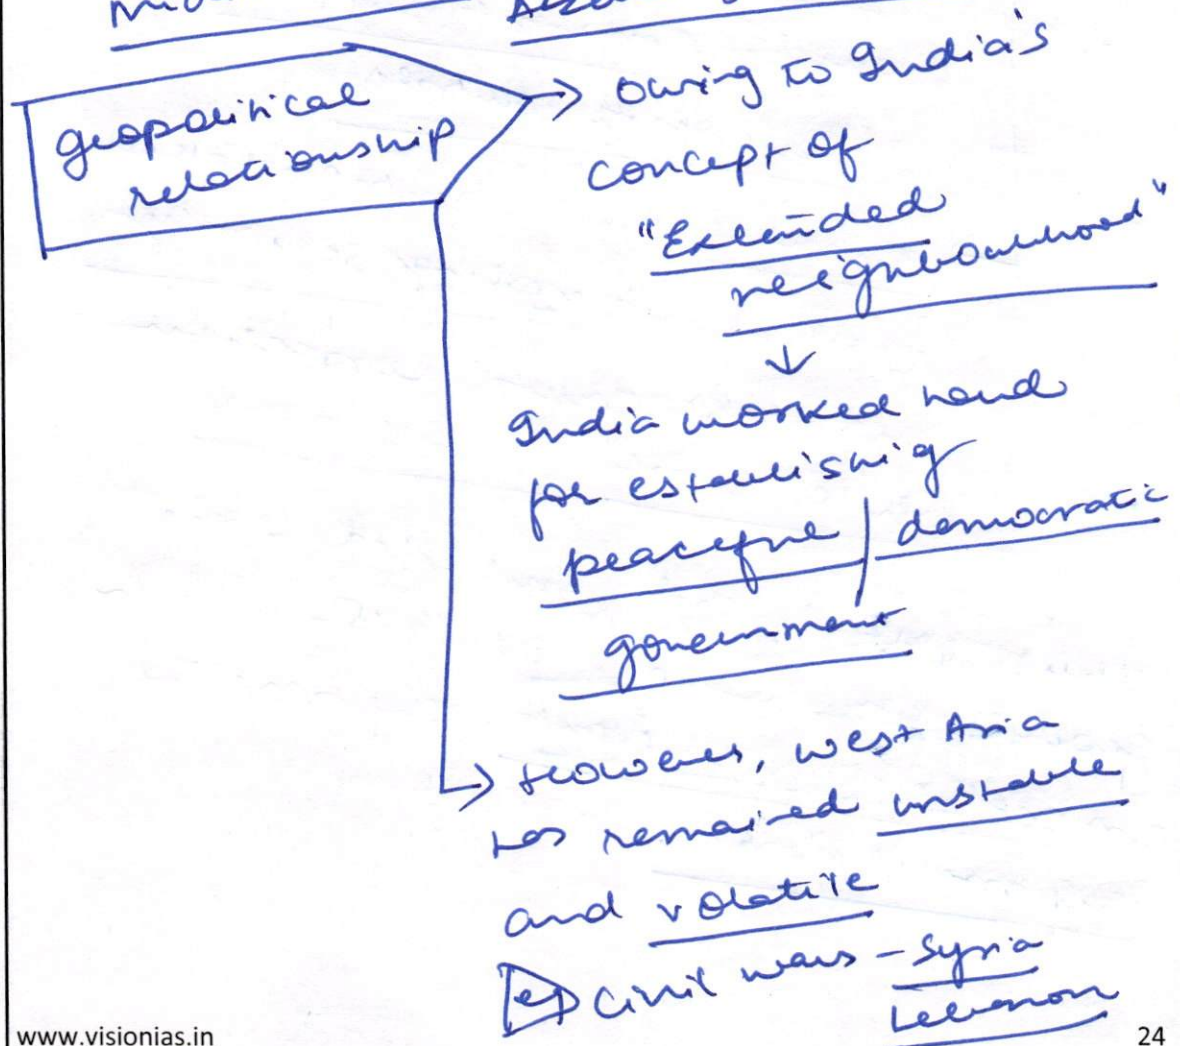 geopolitical
relationship
→ owing to India's
concept of
"Extended
neighbourhood"
↓
India worked hard
for establishing
peaceful / democratic
government
→ However, west Asia
has remained unstable
and volatile
eg civil wars - Syria
Lebanon
www.visionias.in
24